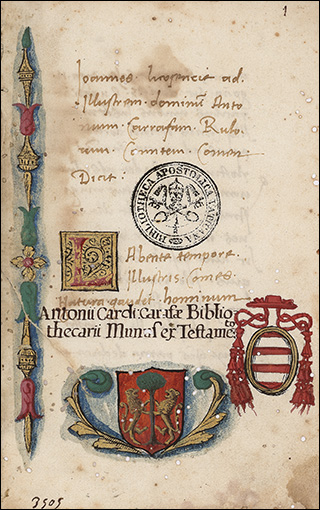 1
Ioannes ad.
Illustrem. dominum Anto
num. Carrafam. Rubo
Comitem.
Dicit:
BIBLIOTHECA APOSTOLICA VATICANA
L Abente tempore
Illustris Comes
Natura gaudet hominum
Antonii Cardi: Carafæ Biblio
thecarii Munus ex Testamēto
3505